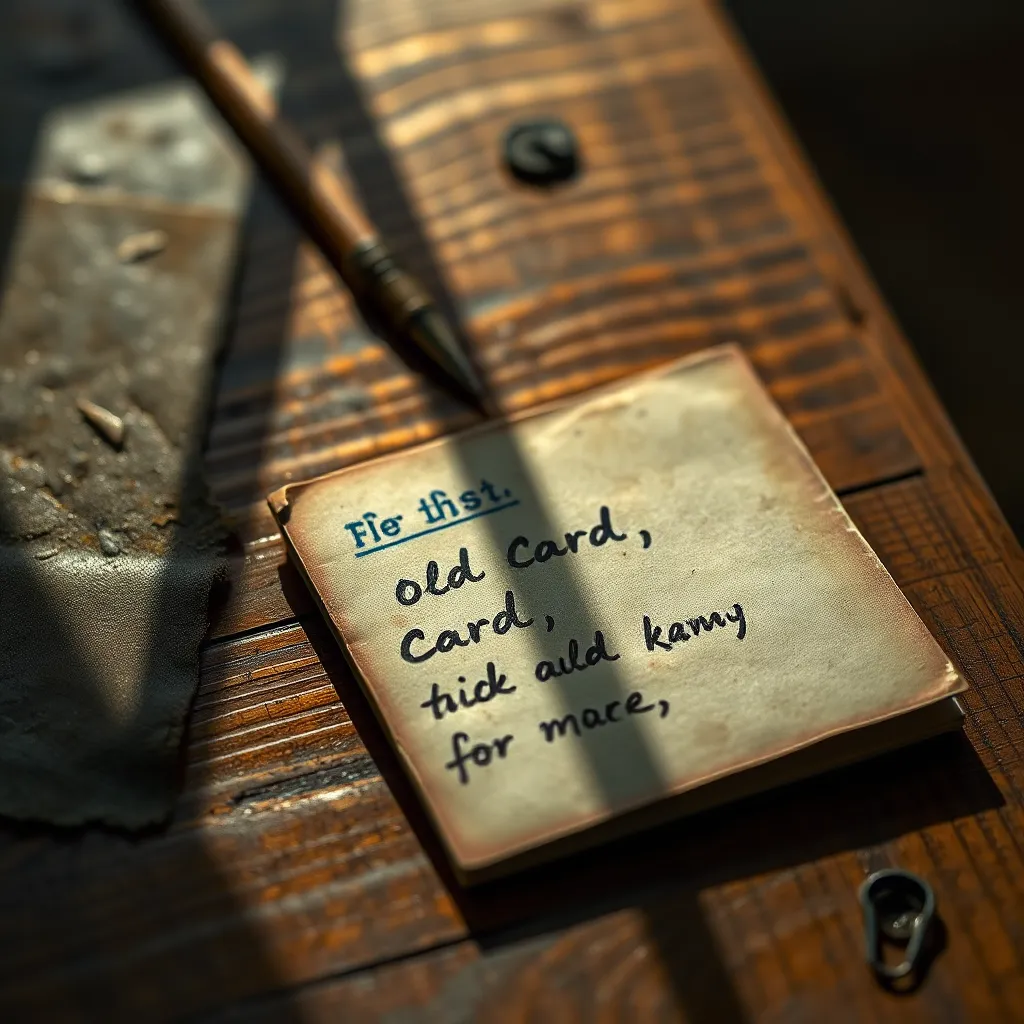 Fie thst.
old Card,
Card,
thick auld kamy
for mace,